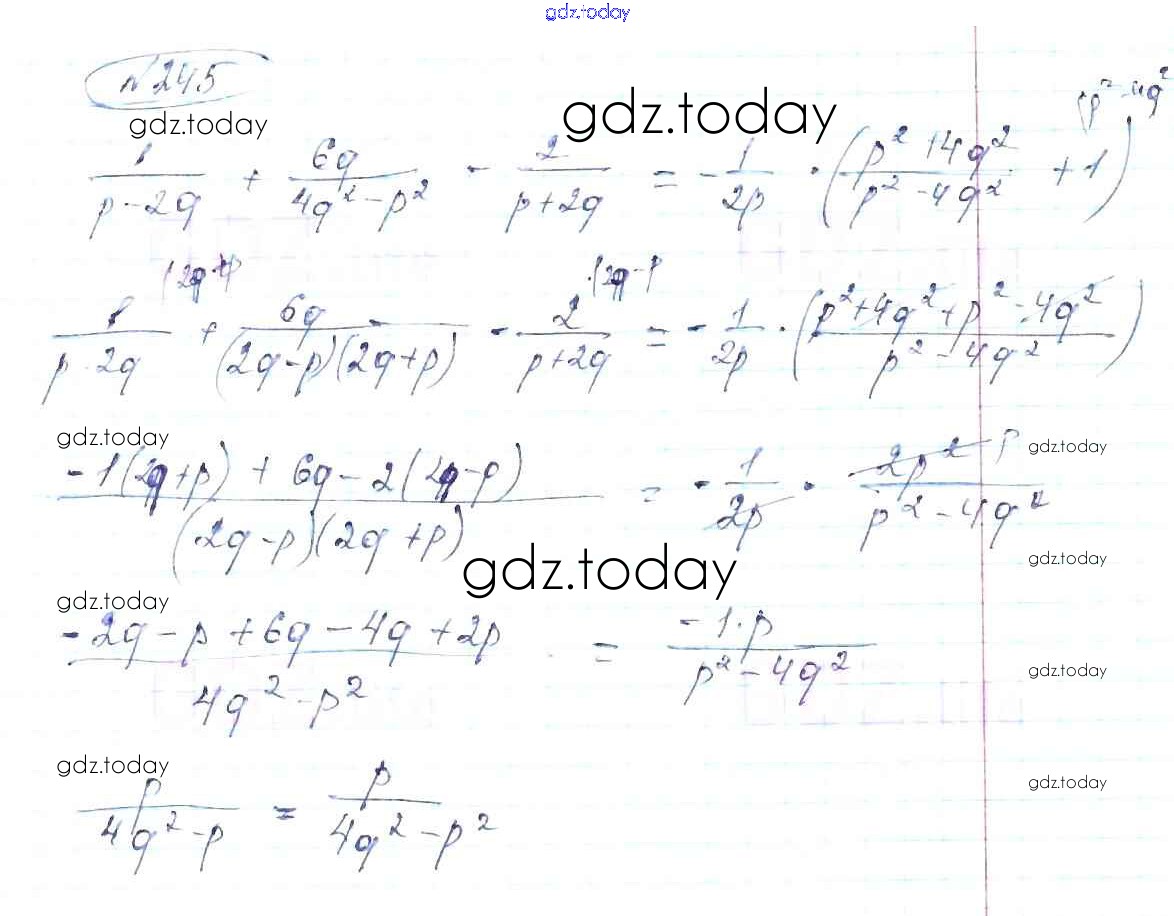 gdz.today
№245
gdz.today gdz.today (p² - 4q²
1/(p - 2q) + 6q/(4q² - p²) - 2/(p + 2q) = - 1/2p · ((p² + 4q²)/(p² - 4q²) + 1)
(2q + p (2q - p
1/(p - 2q) + 6q/((2q - p)(2q + p)) - 2/(p + 2q) = - 1/2p · ((p² + 4q² + p² - 4q²)/(p² - 4q²))
gdz.today gdz.today
(-1(2q + p) + 6q - 2(2q - p))/((2q - p)(2q + p)) = - 1/2p · 2p² p/(p² - 4q²)
gdz.today gdz.today
gdz.today
(-2q - p + 6q - 4q + 2p)/(4q² - p²) = (-1 · p)/(p² - 4q²)
gdz.today
gdz.today gdz.today
p/(4q² - p) = p/(4q² - p²)